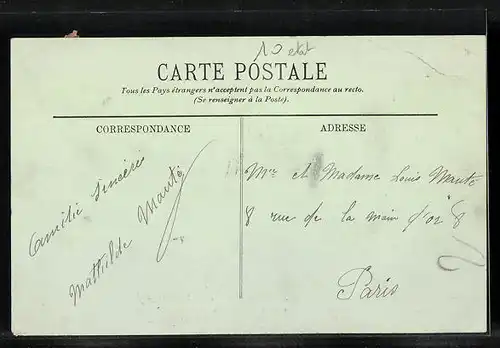 10 etat
CARTE POSTALE
Tous les Pays étrangers n'acceptent pas la Correspondance au recto.
(Se renseigner à la Poste).
CORRESPONDANCE
ADRESSE
Mr et Madame Louis Mauté
8 rue de la main d'or 8
Paris
2
amitié sincère
Mathilde Mauté